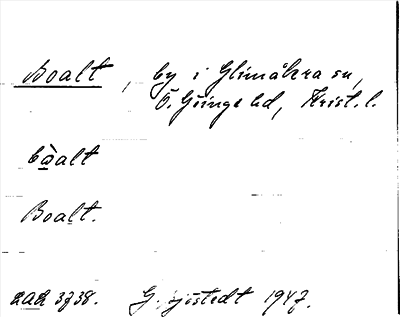 Boalt, by i Glimåkra sn,
Ö. Göinge hd, Krist. l.
bòalt
Boalt.
3738. G. 1947.